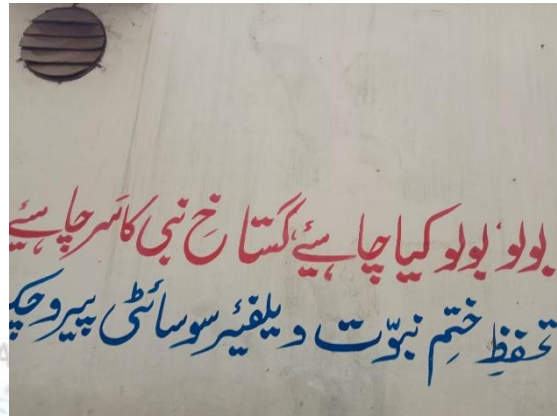 بولو بولو کیا چاہیے گستاخِ نبی کا سَر چاہیے
تحفظِ ختمِ نبوّت ویلفیئر سوسائٹی پیرو